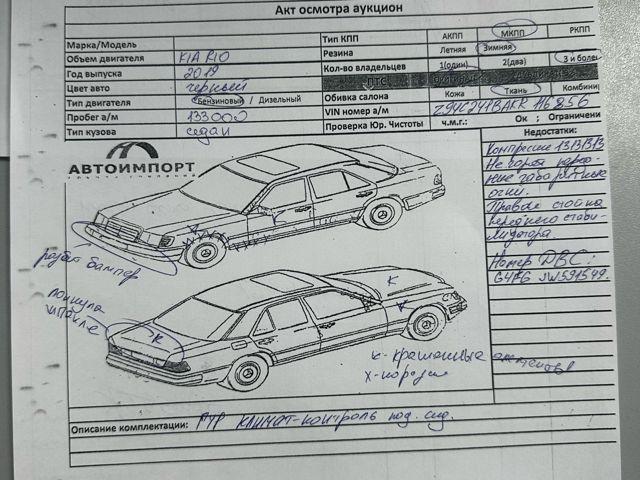 Акт осмотра аукцион
Марка/Модель
Тип КПП АКПП МКПП РКПП
Объем двигателя KIA RIO
Резина Летняя Зимняя
Год выпуска 2019
Кол-во владельцев 1(один) 2(два) 3 и более
Цвет авто черный
ПТС
Тип двигателя Бензиновый / Дизельный
Обивка салона Кожа Ткань Комбини
Пробег а/м 133000
VIN номер а/м
Тип кузова седан
Проверка Юр. Чистоты ч.м.г.: Ок ; Ограничени
АВТОИМПОРТ
Недостатки:
Компрессия 13131313
Не горят перед-
ние габаритные
огни.
Правая стойка
переднего стаби-
лизатора
Номер ДВС:
G4FG JW591549.
бампер
к
к
к
к - крашенные элементы
х -
Описание комплектации: ГУР климат-контроль под. сид.